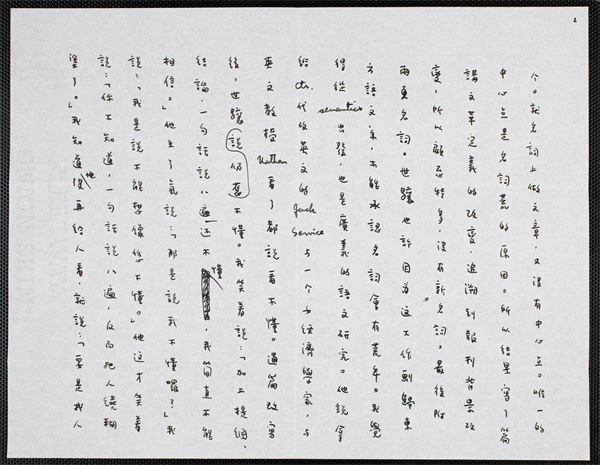 2
个。就名詞上做文章，又沒有中心点。唯一的
中心点是名詞荒的原因。所以結果寫了篇
講文革定義的改變，追溯到報刊背景改
變，所以顧忌特多，沒有新名詞。最後附
兩頁名詞。世驤也許因為這工作劃歸東
方語文系，不能承認名詞會有荒年。我覺
得從semantics出發，也是廣義的語文研究。他說拿
給ctr.代改英文的Jack Service与一个女經濟學家与
英文教授Nathan看了都說看不懂。通篇改寫
後，世驤說仍舊不懂。我笑着說：「加上提綱、
結論，一句話說八遍還不懂，我簡直不能
相信。」他生了氣說：「那是說我不懂囉？」我
說：「我是說不能想像你不懂。」他這才笑着
說：「你不知道，一句話說八遍，反而把人繞糊
塗了。」我知道他沒再給人看，就說：「要是找人